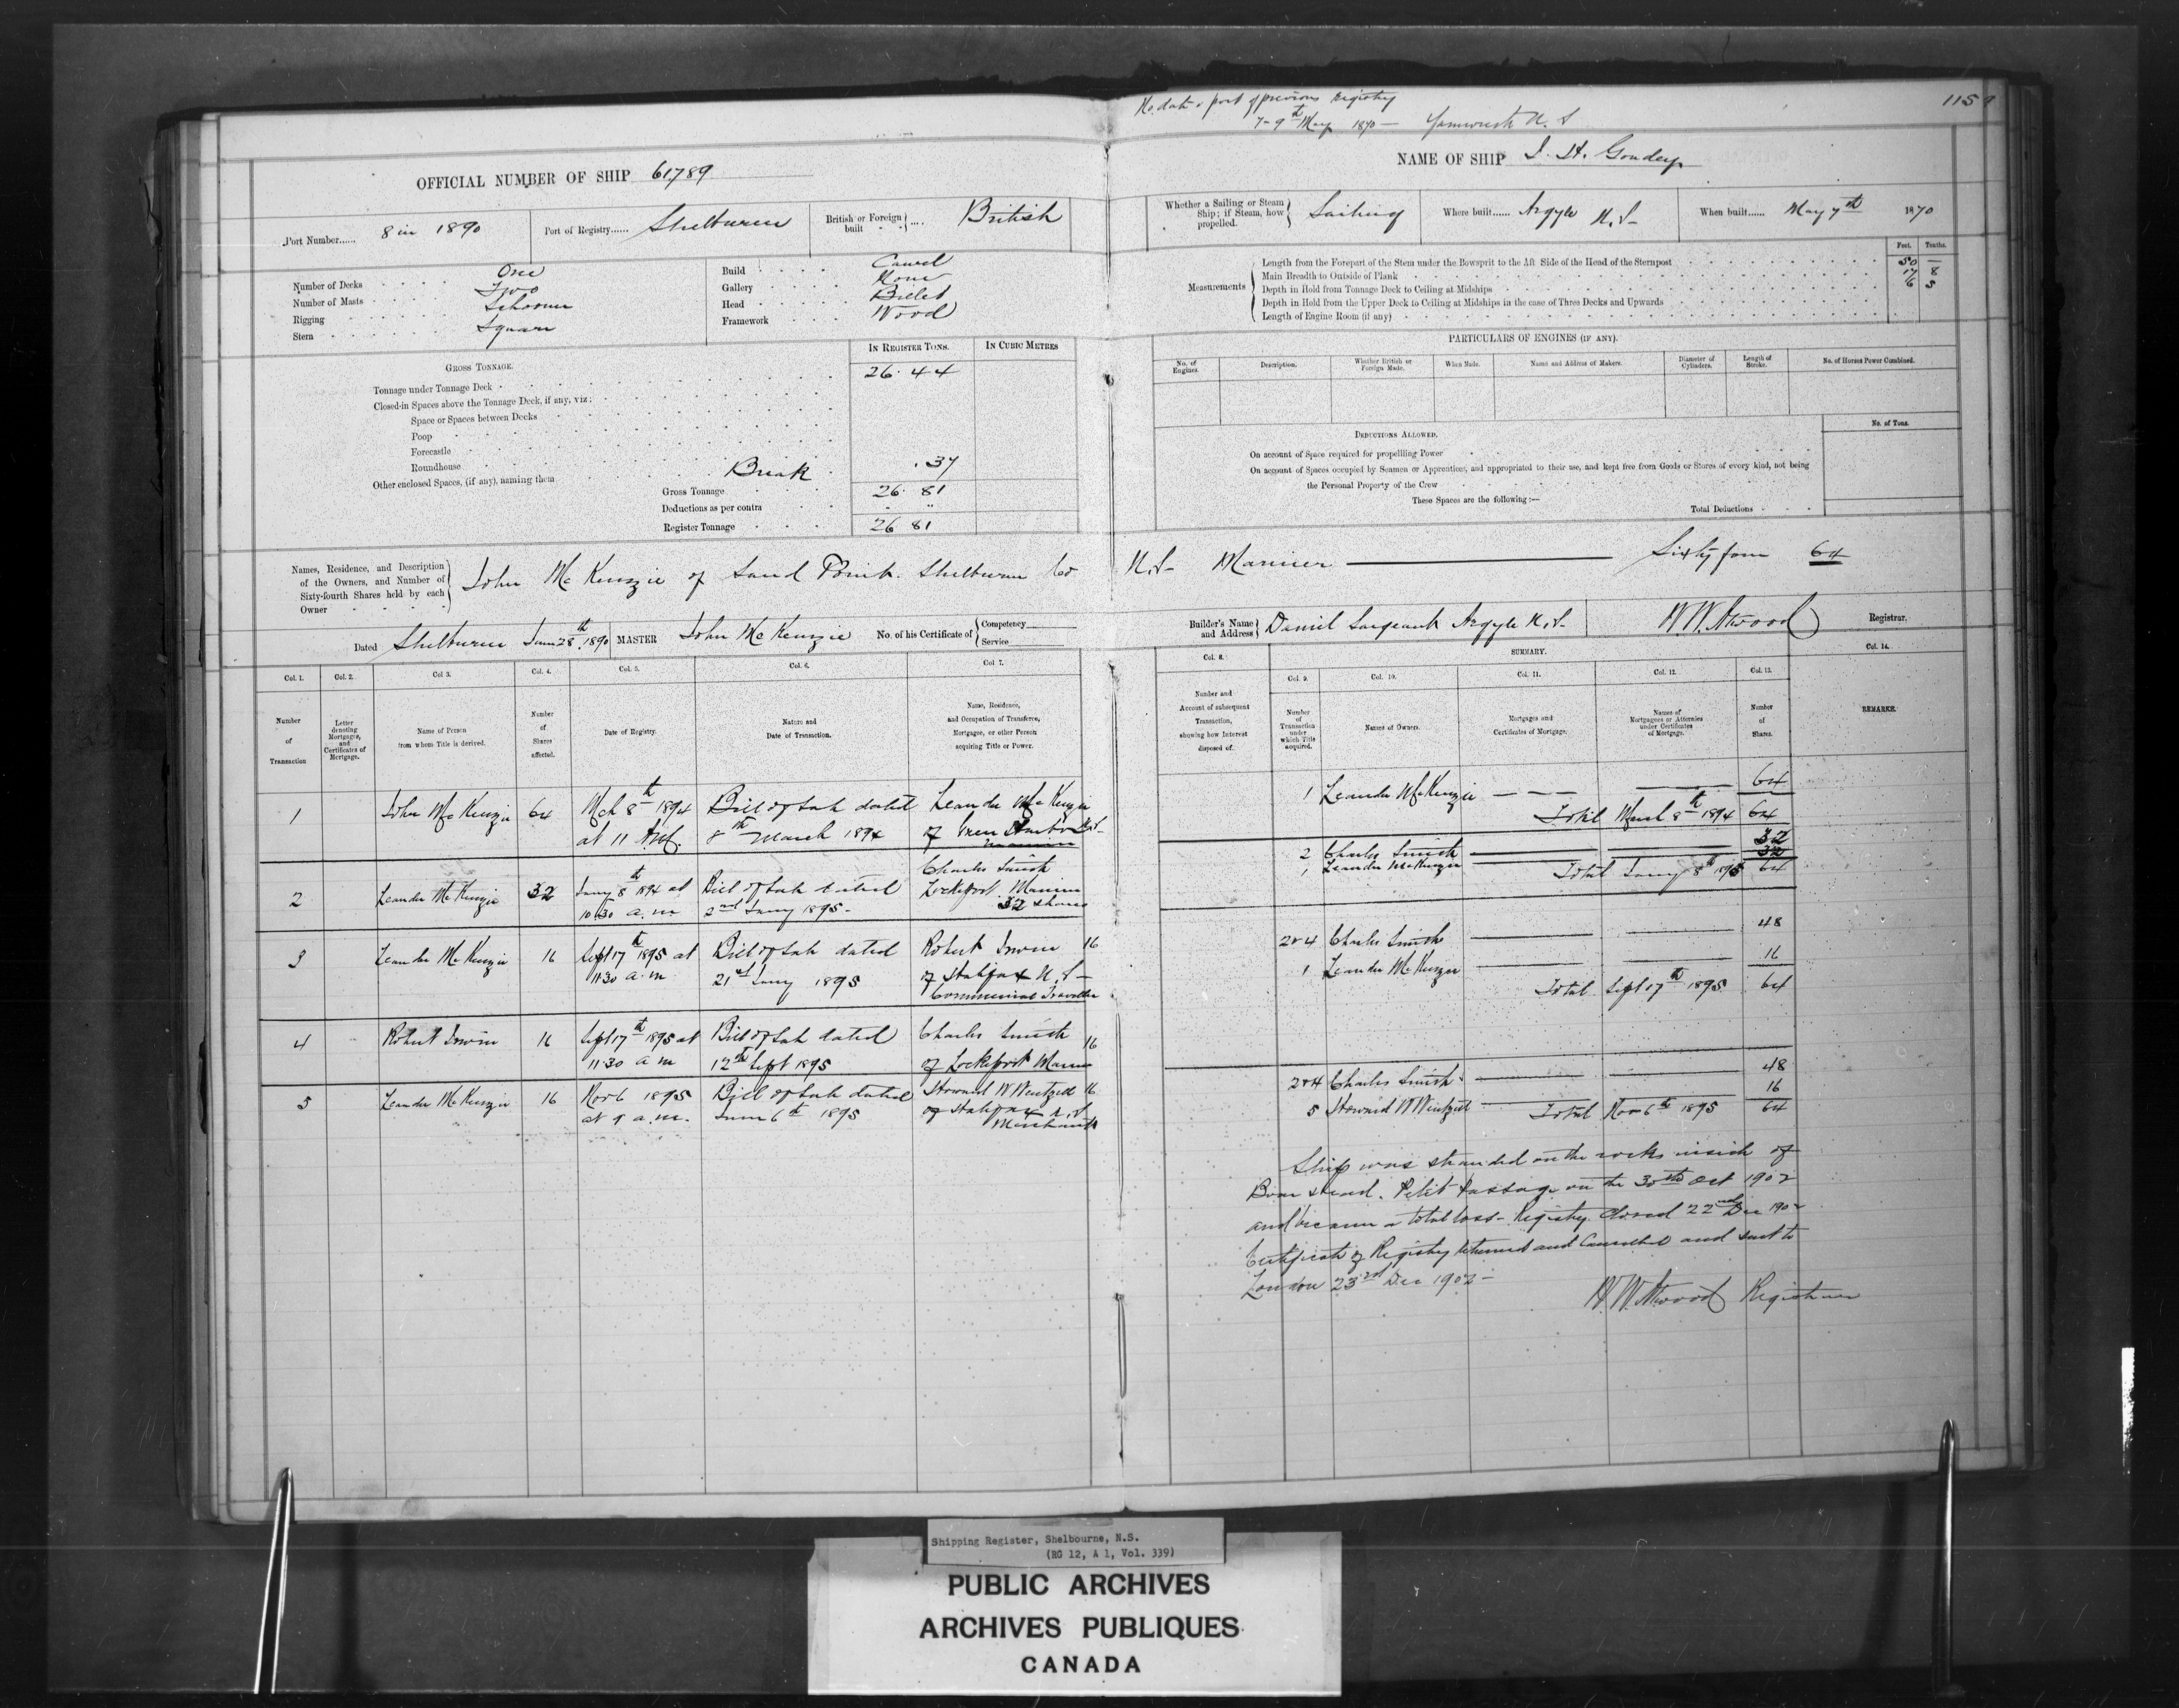 No. date & port of previous Registry
7 - 9th May 1870 — Yarmouth N. S
115
OFFICIAL NUMBER OF SHIP 61,789
NAME OF SHIP J. H. Goudey
Port Number...... 8 in 1890
Port of Registry...... Shelburne
British or Foreign built .... British
Whether a Sailing or Steam Ship; if Steam, how propelled. Sailing
Where built...... Argyle N.S-
When built...... May 7th 1870
Number of Decks One
Number of Masts Two
Rigging Schooner
Stern Square
Build Carvel
Gallery None
Head Billet
Framework Wood
Feet. Tenths.
Measurements
Length from the Forepart of the Stem under the Bowsprit to the Aft Side of the Head of the Sternpost 50 —
Main Breadth to Outside of Plank 17 8
Depth in Hold from Tonnage Deck to Ceiling at Midships 6 5
Depth in Hold from the Upper Deck to Ceiling at Midships in the case of Three Decks and Upwards
Length of Engine Room (if any)
GROSS TONNAGE.
IN REGISTER TONS.
IN CUBIC METRES
Tonnage under Tonnage Deck 26.44
Closed-in Spaces above the Tonnage Deck, if any, viz:
Space or Spaces between Decks
Poop
Forecastle
Roundhouse
Other enclosed Spaces, (if any), naming them Break .37
Gross Tonnage 26.81
Deductions as per contra "
Register Tonnage 26 81
PARTICULARS OF ENGINES (IF ANY).
No. of Engines.
Description.
Whether British or Foreign Made.
When Made.
Name and Address of Makers.
Diameter of Cylinders.
Length of Stroke.
No. of Horses Power Combined.
DEDUCTIONS ALLOWED.
No. of Tons.
On account of Space required for propelling Power
On account of Spaces occupied by Seamen or Apprentices, and appropriated to their use, and kept free from Goods or Stores of every kind, not being
the Personal Property of the Crew
These Spaces are the following:—
Total Deductions
Names, Residence, and Description of the Owners, and Number of Sixty-fourth Shares held by each Owner
John McKenzie of Sand Point Shelburne Co N.S- Mariner — Sixty four 64
Dated Shelburne June 28th, 1890
MASTER John McKenzie
No. of his Certificate of Competency Service
Builder's Name and Address Daniel Sargeant Argyle N.S-
W.W. Atwood Registrar.
SUMMARY.
Col. 1. Col. 2. Col 3. Col. 4. Col. 5. Col. 6. Col 7.
Col. 8. Col. 9. Col. 10. Col. 11. Col. 12. Col. 13. Col. 14.
Number of Transaction
Letter denoting Mortgages, and Certificates of Mortgage.
Name of Person from whom Title is derived.
Number of Shares affected.
Date of Registry.
Nature and Date of Transaction.
Name, Residence, and Occupation of Transferee, Mortgagee, or other Person acquiring Title or Power.
Number and Account of subsequent Transaction, showing how Interest disposed of.
Number of Transaction under which Title acquired.
Names of Owners.
Mortgages and Certificates of Mortgage.
Names of Mortgagees or Attornies under Certificates of Mortgage.
Number of Shares.
REMARKS.
1 John McKenzie 64 Mch 8th 1894 Bill of Sale dated Leander McKenzie
at 11 AM. 8th March 1894 of Green Harbor N.S-
Mariner
2 Leander McKenzie 32 Jany 8th 1894 at Bill of Sale dated Charles Smith
10.30 a.m 2nd Jany 1895- Lockeport Mariner
32 shares
3 Leander McKenzie 16 Sept 17th 1895 at Bill of Sale dated Robert Irwin 16
11.30 a.m 21st Jany 1895 of Halifax N.S-
Commercial Traveller
4 Robert Irwin 16 Sept 17th 1895 at Bill of Sale dated Charles Smith 16
11.30 a m 12th Sept 1895 of Lockeport Mariner
5 Leander McKenzie 16 Nov 6 1895 Bill of Sale dated Howard W Wentzell 16
at 9 a.m. June 6th 1895 of Halifax N.S
Merchant
1 Leander McKenzie 64
Total March 8th 1894 64
2 Charles Smith 32
1 Leander McKenzie 32
Total Jany 8th 1895 64
2&4 Charles Smith 48
1 Leander McKenzie 16
Total Sept 17th 1895 64
2&4 Charles Smith 48
5 Howard W Wentzell 16
Total Nov 6th 1895 64
Ship was stranded on the rocks inside of
Boar Head. Petit Passage on the 30th Oct 1902
and became a total loss- Registry closed 22nd Dec 1902
Certificate of Registry returned and Cancelled and sent to
London 23rd Dec 1902-
W.W. Atwood Registrar
Shipping Register, Shelbourne, N.S.
(RG 12, A 1, Vol. 339)
PUBLIC ARCHIVES
ARCHIVES PUBLIQUES
CANADA